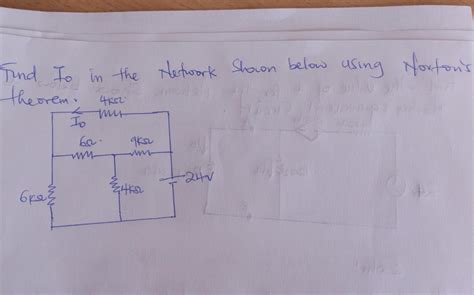 Find Io in the Network Shown below using Norton's
theorem.
4kΩ
Io
6Ω.
9kΩ
6kΩ
4kΩ
24V